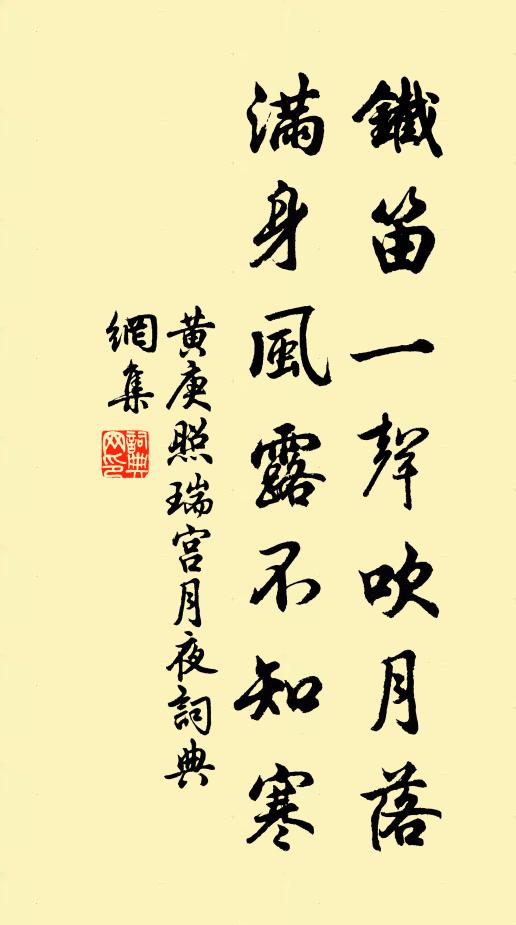 鐵笛一聲吹月落
滿身風露不知寒
黃庚照瑞宮月夜詞典
網集
詞典网印